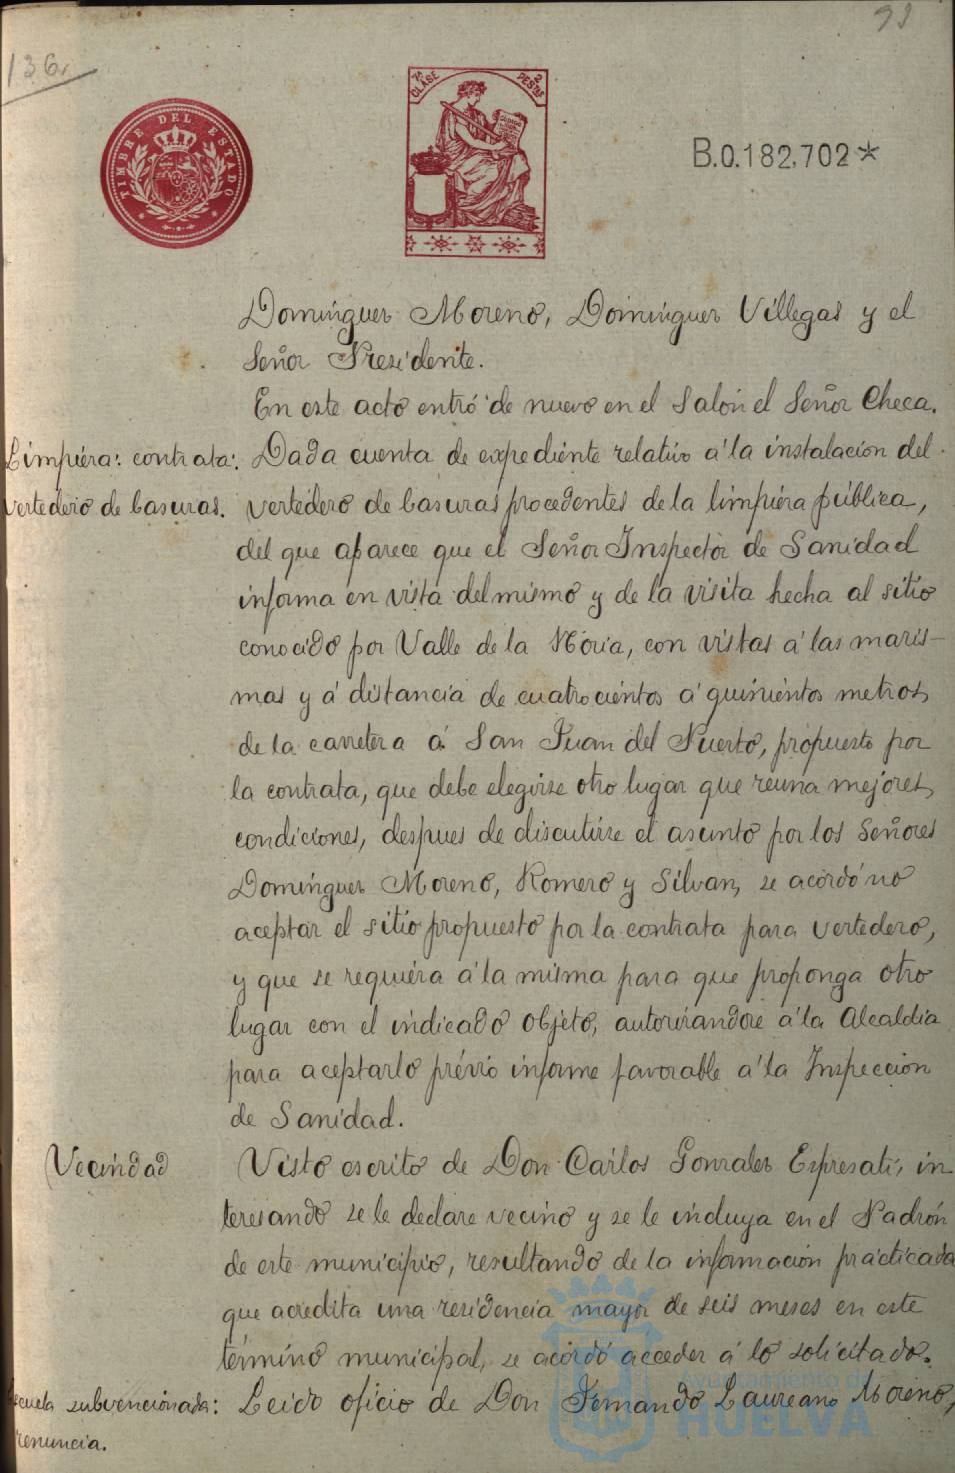 93
136.
TIMBRE DEL ESTADO
7ª CLASE
2 PESTAS
B.0.182.702*
Dominguez Moreno, Dominguez Villegas y el
Señor Presidente.
En este acto entró de nuevo en el Salón el Señor Checa.
Limpieza: contrata:
vertedero de basuras.
Dada cuenta de expediente relativo á la instalación del
vertedero de basuras procedentes de la limpieza pública,
del que aparece que el Señor Inspector de Sanidad
informa en vista del mismo y de la visita hecha al sitio
conocido por Valle de la Noria, con vistas á las maris-
mas y á distancia de cuatrocientos á quinientos metros
de la carretera á San Juan del Puerto, propuesto por
la contrata, que debe elegirse otro lugar que reuna mejores
condiciones, despues de discutirse el asunto por los Señores
Dominguez Moreno, Romero y Silvan, se acordó no
aceptar el sitio propuesto por la contrata para vertedero,
y que se requiera á la misma para que proponga otro
lugar con el indicado objeto, autorizandose á la Alcaldia
para aceptarlo prévio informe favorable á la Inspeccion
de Sanidad.
Vecindad
Visto escrito de Don Carlos Gonzalez Espresati, in
teresando se le declare vecino y se le incluya en el Padrón
de este municipio, resultando de la información practicada
que acredita una residencia mayor de seis meses en este
término municipal, se acordó acceder á lo solicitado.
Escuela subvencionada:
renuncia.
Leido oficio de Don Fernando Laureano Moreno,
Ayuntamiento de
HUELVA